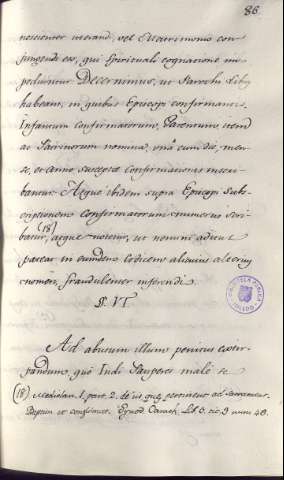 86.
nescienter uterand, vel Matrimonio con
jungendi eos, qui Spirituali cognatione im
pediuntur Decernimus, ut Parochi Libr
habeant, in quibus Episcopi confirmantis,
Infantium confirmatorum, Parentum, item
ac Patrinorum nomina, una cum die, men
se, et anno susceptæ confirmationis inscri
bantur Atque ibidem supra Episcopi Subs
criptionem confirmatorum numerus scri
batur, (18) atque notetur, ut nemini aditus
pateat in eumdem Codicem alicuius alterius
nomen, fraudulenter inferendi.
§. VI.
Ad abusum illum penitus extir
pandum, quo Indi Pauperes male se
(18) Mediolan. 1. part. 2. de iis quæ pertinent ad Sacrament.
Baptism et confirmat. Synod. Carach. Lib 3. tit. 3 num 48.